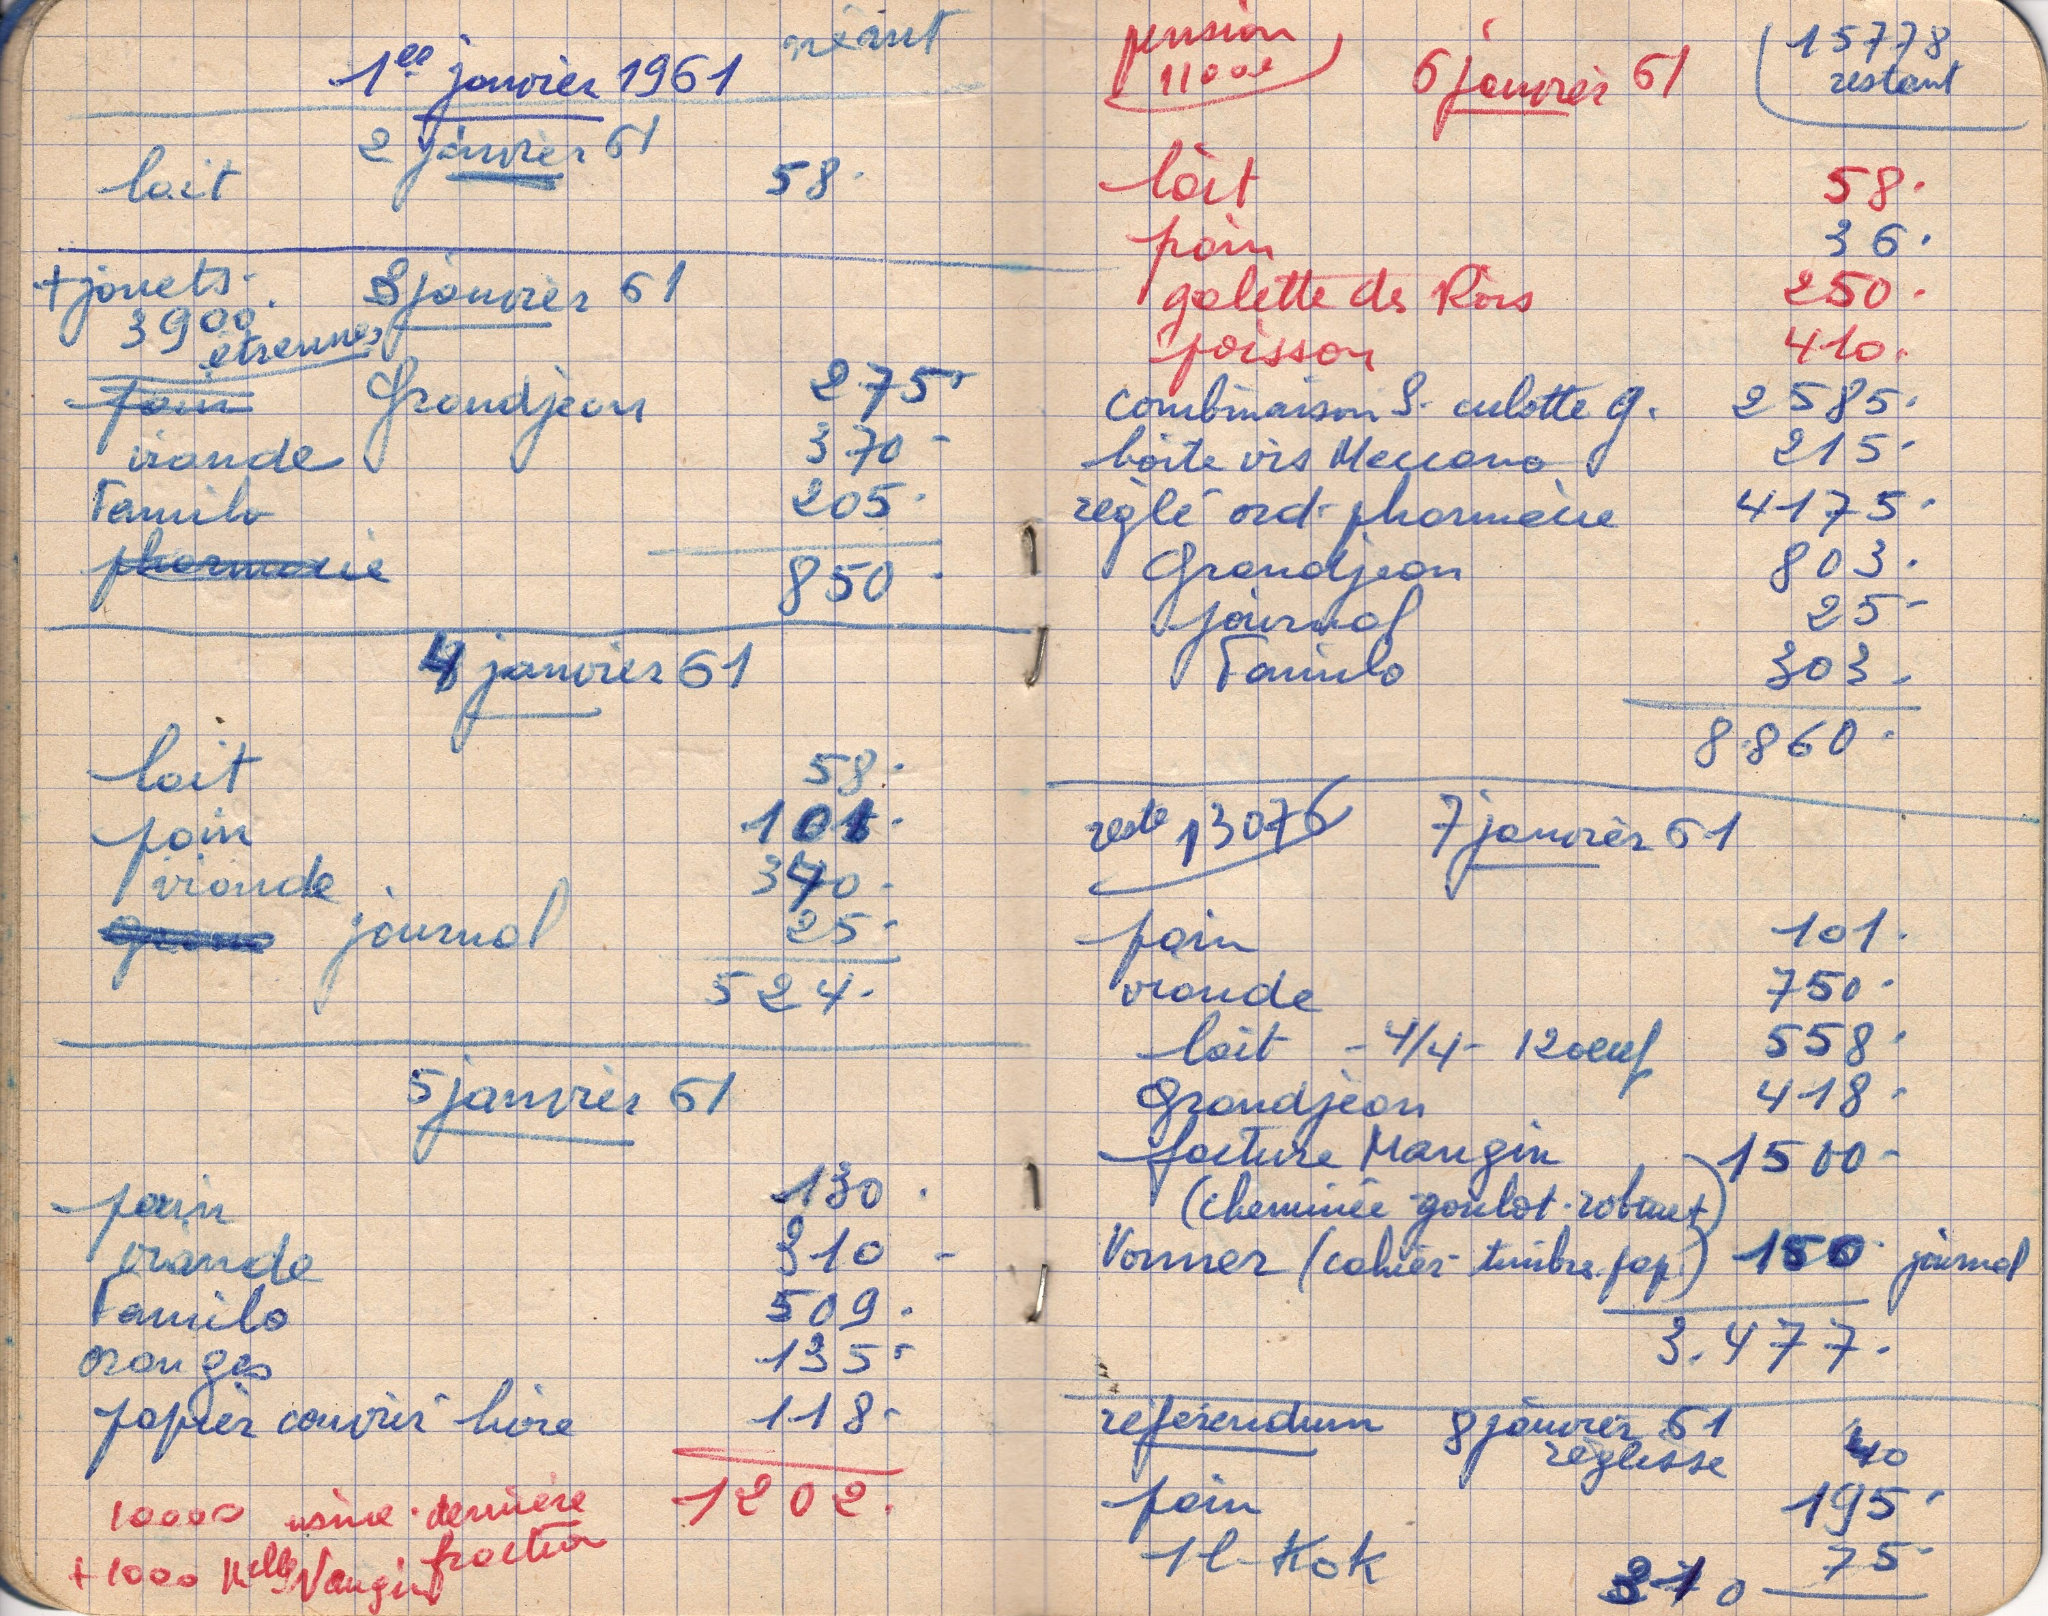 1er janvier 1961 néant
2 janvier 61
lait 58.
+ jouets. 3 janvier 61
3900.
étrennes
pain Grandjean 275
viande 370 -
Familo 205.
pharmacie 850.
4 janvier 61
lait 58.
pain 101.
viande 340.
journal 25.
524.
5 janvier 61
pain 130.
viande 310 -
Familo 509.
oranges 135
papier couvrir livre 118.
1202.
10000 usine. dernière
fraction
+ 1000 Melle Vaugin
pension
11000 6 janvier 61 15778
restant
lait 58.
pain 36.
galette des Rois 250.
poisson 410.
combinaison S. culotte g. 2585.
boite vis Meccano 215.
règlé ord. pharmacie 4175.
Grandjean 803.
journal 25 -
Familo 303.
8.860.
reste 13076 7 janvier 61
pain 101.
viande 750.
lait - 4/4 - 12 oeuf 558.
Grandjean 418.
facture Mangin 1500 -
(cheminée goulot. robinet)
Vonner (cahier timbre. pap.) 150 journal
3.477.
référendum 8 janvier 61
réglisse 40
pain 195.
1 l. Kok 75.
310